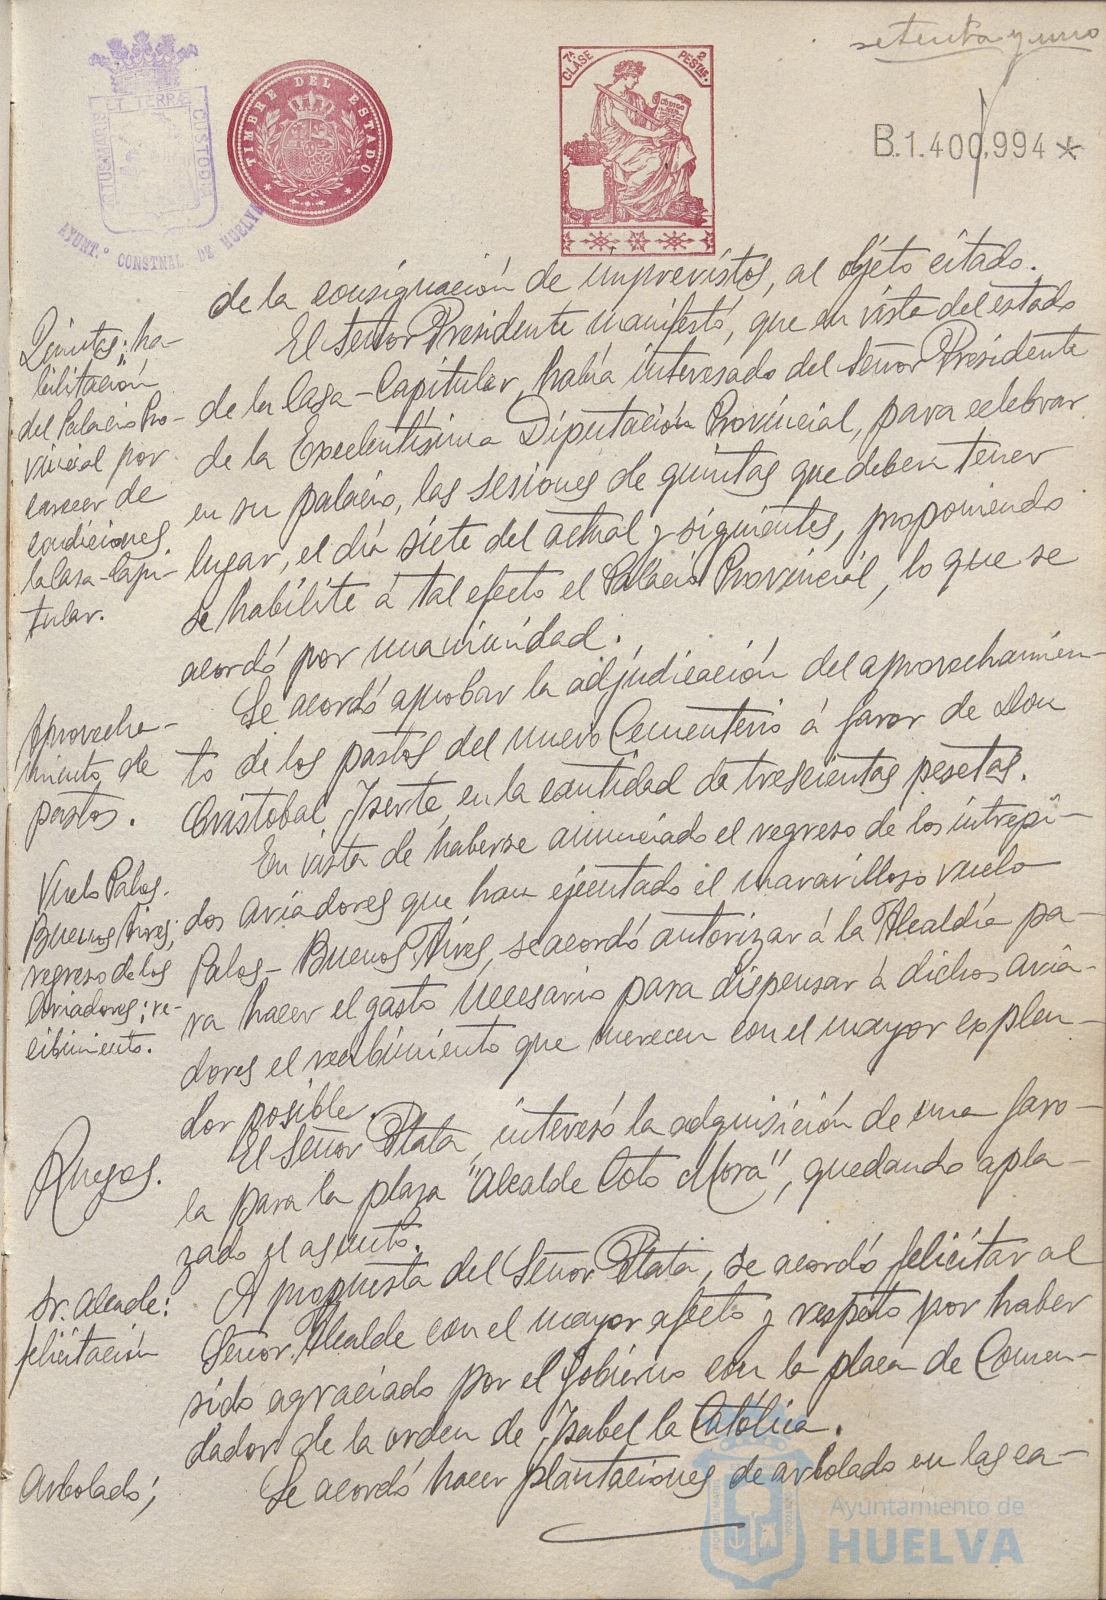 setenta y uno
PORTUS MARIS ET TERRÆ CUSTODIA
AYUNT.º CONSTNAL. DE HUELVA
TIMBRE DEL ESTADO
7ª CLASE
2 PESTAS.
CÓDIGO
B.1.400,994*
de la consignación de imprevistos, al objeto citado.
Quintas; ha-
bilitación
del Palacio Pro-
vincial por
carecer de
condiciones
la Casa-Capi-
tular.
El Señor Presidente manifestó, que en vista del estado
de la Casa-Capitular, había interesado del Señor Presidente
de la Excelentísima Diputación Provincial, para celebrar
en su palacio, las sesiones de quintas que deben tener
lugar, el día siete del actual y siguientes, proponiendo
se habilite á tal efecto el Palacio Provincial, lo que se
acordó por unanimidad.
Aprovecha-
miento de
pastos.
Se acordó aprobar la adjudicación del aprovechamien-
to de los pastos del nuevo Cementerio á favor de Don
Cristobal Iserte, en la cantidad de trescientas pesetas.
Vuelo Palos.
Buenos Aires;
regreso de los
aviadores; re-
cibimiento.
En vista de haberse anunciado el regreso de los intrepi-
dos aviadores que han ejecutado el maravilloso vuelo
Palos-Buenos Aires, se acordó autorizar á la Alcaldía pa-
ra hacer el gasto necesario para dispensar á dichos avia-
dores el recibimiento que merecen con el mayor explen-
dor posible.
Ruegos.
El Señor Plata, interesó la adquisición de una faro-
la para la plaza "Alcalde Coto Mora", quedando apla-
zado el asunto.
Sr. Alcade:
felicitación
A propuesta del Señor Plata, se acordó felicitar al
Señor Alcalde con el mayor afecto y respeto por haber
sido agraciado por el Gobierno con la placa de Comen-
dador de la orden de Isabel la Católica.
Arbolado;
Se acordó hacer plantaciones de arbolado en las ca-
Ayuntamiento de
HUELVA